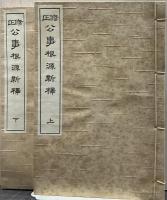 修正 公事根源新釋 上
修正 公事根源新釋 下